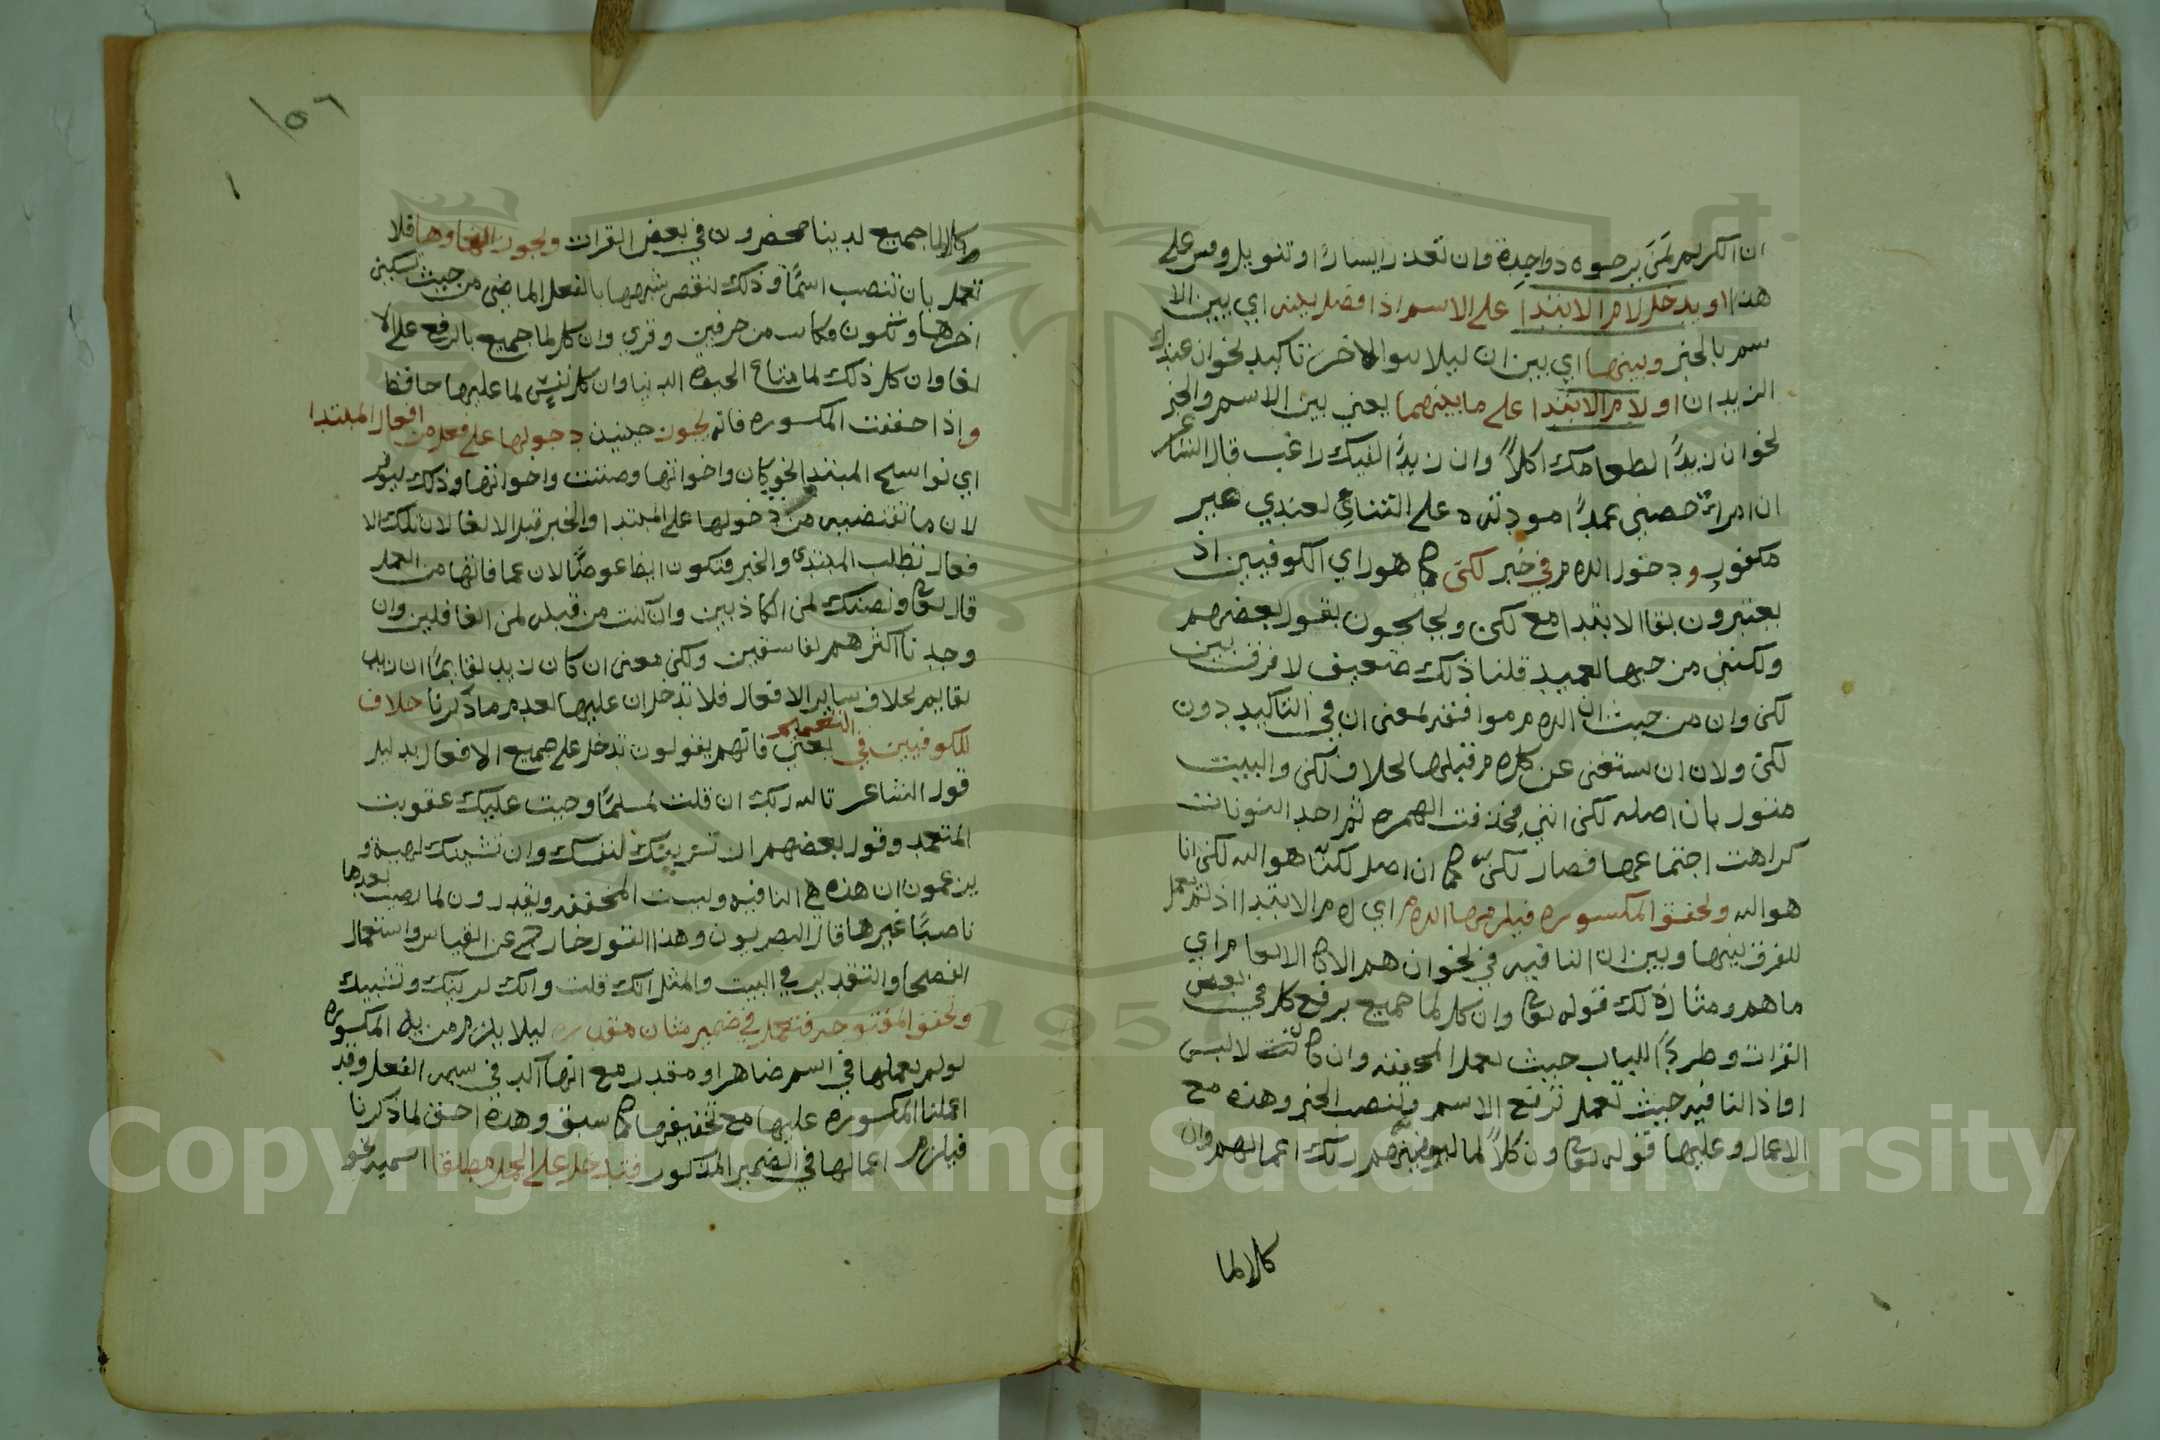 ان الكريم لمن يرجوه ذو اجدة وان تعذر ايسار او تنويل وقس على
هذا او يدخل لام الابتدا على الاسم اذا فصل بينه اي بين الا
سم بالخبر وبينها اي بين ان ليلا يتوالا حرفا تاكيد نحو ان عندك
لزيدا ن او لام الابتدا على ما بينهما يعني بين الاسم والخبر
نحو ان زيدًا لطعامك اكلاً وان زيدًا لفيك راغب قال الشاعر
ان امراً خصني عمدًا مودته على التنائي لعندي غير
مكفور ودخول اللام في خبر لكن كما هو راي الكوفيين اذ
يعتبرون بقا الابتدا مع لكن ويحتجون بقول بعضهم
ولكنني من حبها لعميد قلنا ذلك ضعيف لا فرق بين
لكن وان من حيث ان اللام موافقة لمعنى ان في التاكيد دون
لكن ولان ان يستغنى عن كلام قبلها بخلاف لكن والبيت
متاول بان اصله لكن انني فحذفت الهمزه ثم احد النونات
كراهت اجتماعها فصار لكن كما ان اصل لكنا هو الله لكن انا
هو الله وتخفف المكسوره فيلزمها اللام اي لام الابتدا اذ لم تعمل
للفرق بينها وبين ان النافيه في نحو ان هم الا كالانعام اي
ما هم ومثال ذلك قوله تعالى وان كل لما جميع برفع كل في بعض
القرات وطردًا للباب حيث تعمل المخففه وان كانت لا لبس
اذ النافيه حيث تعمل ترفع الاسم وتنصب الخبر وهذه مع
الاعمال وعليها قوله تعالى وان كلاً لما ليوفينهم ربك اعمالهم وان
كلا لما
١٥٦
١
كلا لما جميع لدينا محضرون في بعض القرات ويجوز الغاوها فلا
تعمل بان تنصب اسمًا وذلك لنقص شبهها بالفعل الماضي من حيث تسكين
اخرها وتكون من حرفين وقري وان كل لما جميع بالرفع على الا
لغا وان كل ذلك لما متاع الحيوه الدنيا وان كل نفس لما عليها حافظ
واذا خففت المكسوره فانه يجوز حينيذ دخولها على فعل من افعال المبتدا
اي نواسخ المبتدا نحو كان واخواتها وظننت واخواتها وذلك
لان ما تقتضيه من دخولها على المبتدا والخبر قبل الالغا لان تلك الا
فعال تطلب المبتدى والخبر فتكون ايضا عوضًا لان عما فاتها من العمل
قال تعالى ونظنك لمن الكاذبين وان كنت من قبله لمن الغافلين وان
وجدنا اكثرهم لفاسقين ولكن معنى ان كان زيد لقايمًا ان زيد
لقايم بخلاف ساير الافعال فلا تدخل ان عليها لعدم ما ذكرنا خلاف
للكوفيين في التعميم يعني فانهم يقولون تدخل على جميع الافعال بدليل
قول الشاعر تالله ربك ان قلت لمسلمًا وجبت عليك عقوبت
المتعمد وقول بعضهم ان تزينك لنفسك وان تشينك لهيه و
يزعمون ان هذه هي النافيه وليست المخففه ويقدرون لما نصبت بعدها
ناصبًا غيرها قال البصريون وهذا القول خارج عن القياس واستعمال
الفصحا والتقدير في البيت والمثل انك قلت وانك لزينك وتشينك
وتخفف المفتوحه فتعمل في ضمير شان مقدره ليلا يلزم مزيد المكسوره
لو لم نعملها في اسم ضاهر او مقدر مع انها آكد في شبه الفعل وقد
اعملنا المكسوره عليها مع تخفيفها كما سبق وهذه احق لما ذكرنا
فيلزم اعمالها في الضمير المذكور فتدخل على الجمل مطلقا اسميه نحو
Copyright © King Saud University
1957